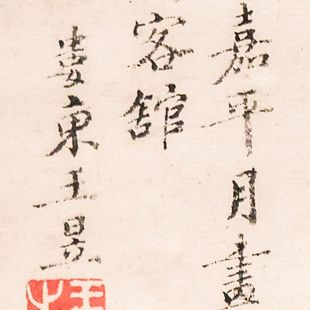 嘉平月畫
客舘
婁東王昱